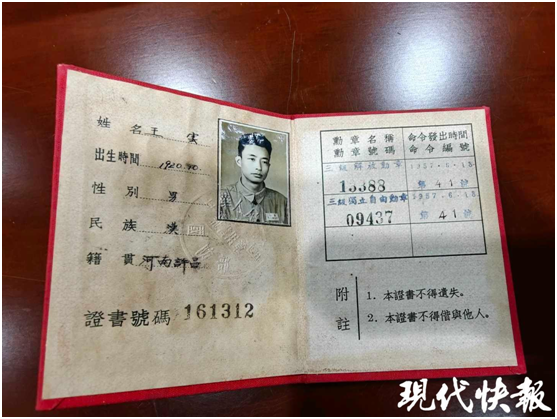 姓名 王
出生時間 1920.10.
性別 男
民族 漢
籍貫 河南許昌
證書號碼 161312
勳章名稱
勳章號碼
命令發出時間
命令編號
三級解放勳章 1957-6-18
13388 第41號
三級獨立自由勳章 1957-6-18
09437 第41號
附註
1. 本證書不得遺失。
2. 本證書不得借與他人。
現代快報